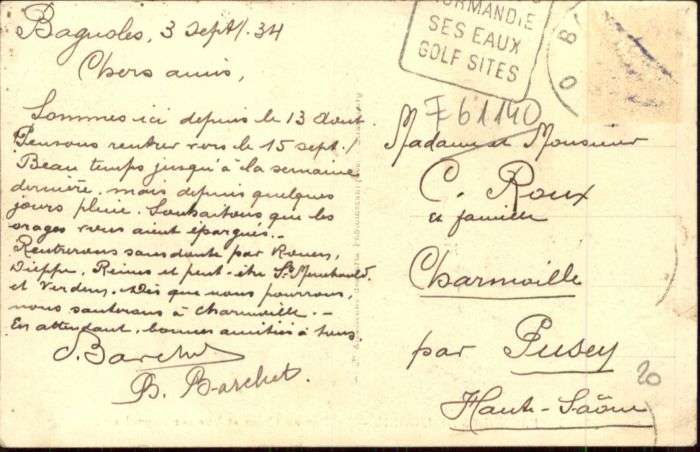 Bagnoles, 3 Sept/. 34
Chers amis,
Sommes ici depuis le 13 Août.
Pensons rentrer vers le 15 sept./
Beau temps jusqu'à la semaine
dernière, mais depuis quelques
jours pluie. Souhaitons que les
orages vous aient épargnés.-
Rentrerons sans doute par Rouen,
Dieppe, Reims et peut-être Ste Menhould.
et Verdun. Dès que nous pourrons,
nous sauterons à Charmoille.-
En attendant, bonnes amitiés à tous.
Barchet
B. Barchet.
NORMANDIE
SES EAUX
GOLF SITES
E61140
Madame et Monsieur
C. Roux
et famille
Charmoille
par Pusey
Haute-Saône
20